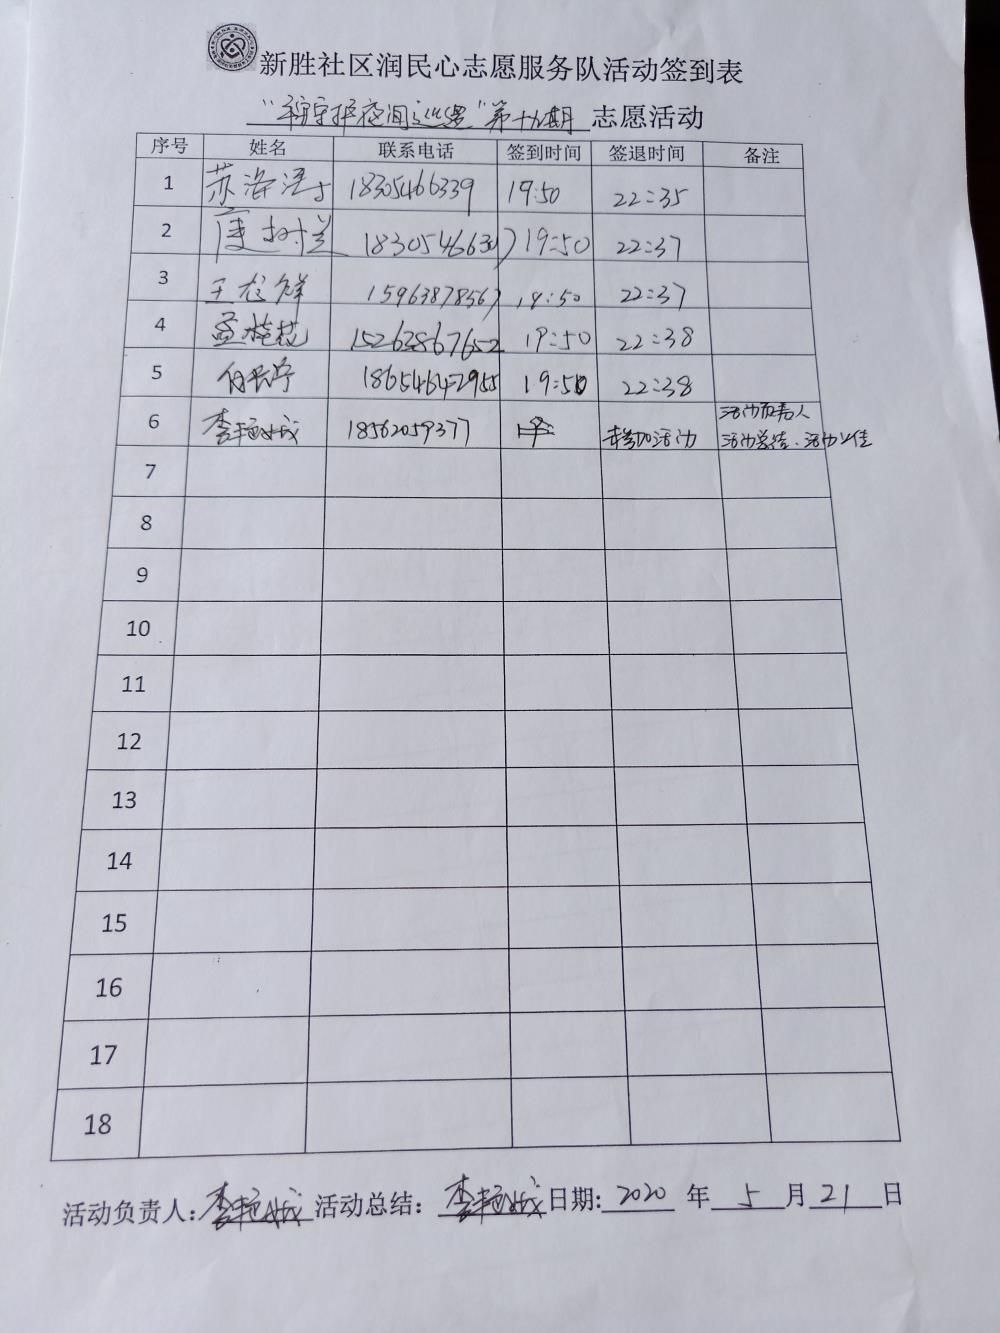 新胜社区润民心志愿服务队活动签到表
守护夜间巡逻"第十九期 志愿活动
序号 姓名 联系电话 签到时间 签退时间 备注
1 苏海涛 18305466339 19:50 22:35
2 唐树兰 19:50 22:37
3 王 祥 15963878567 19:50 22:37
4 孟桂花 15263867652 19:50 22:38
5 18654642955 19:50 22:38
活动负责人
6 李艳城 18562059377 未参加活动 活动总结、活动上传
7
8
9
10
11
12
13
14
15
16
17
18
活动负责人:李艳城 活动总结: 李艳城 日期: 2020 年 5 月 21 日